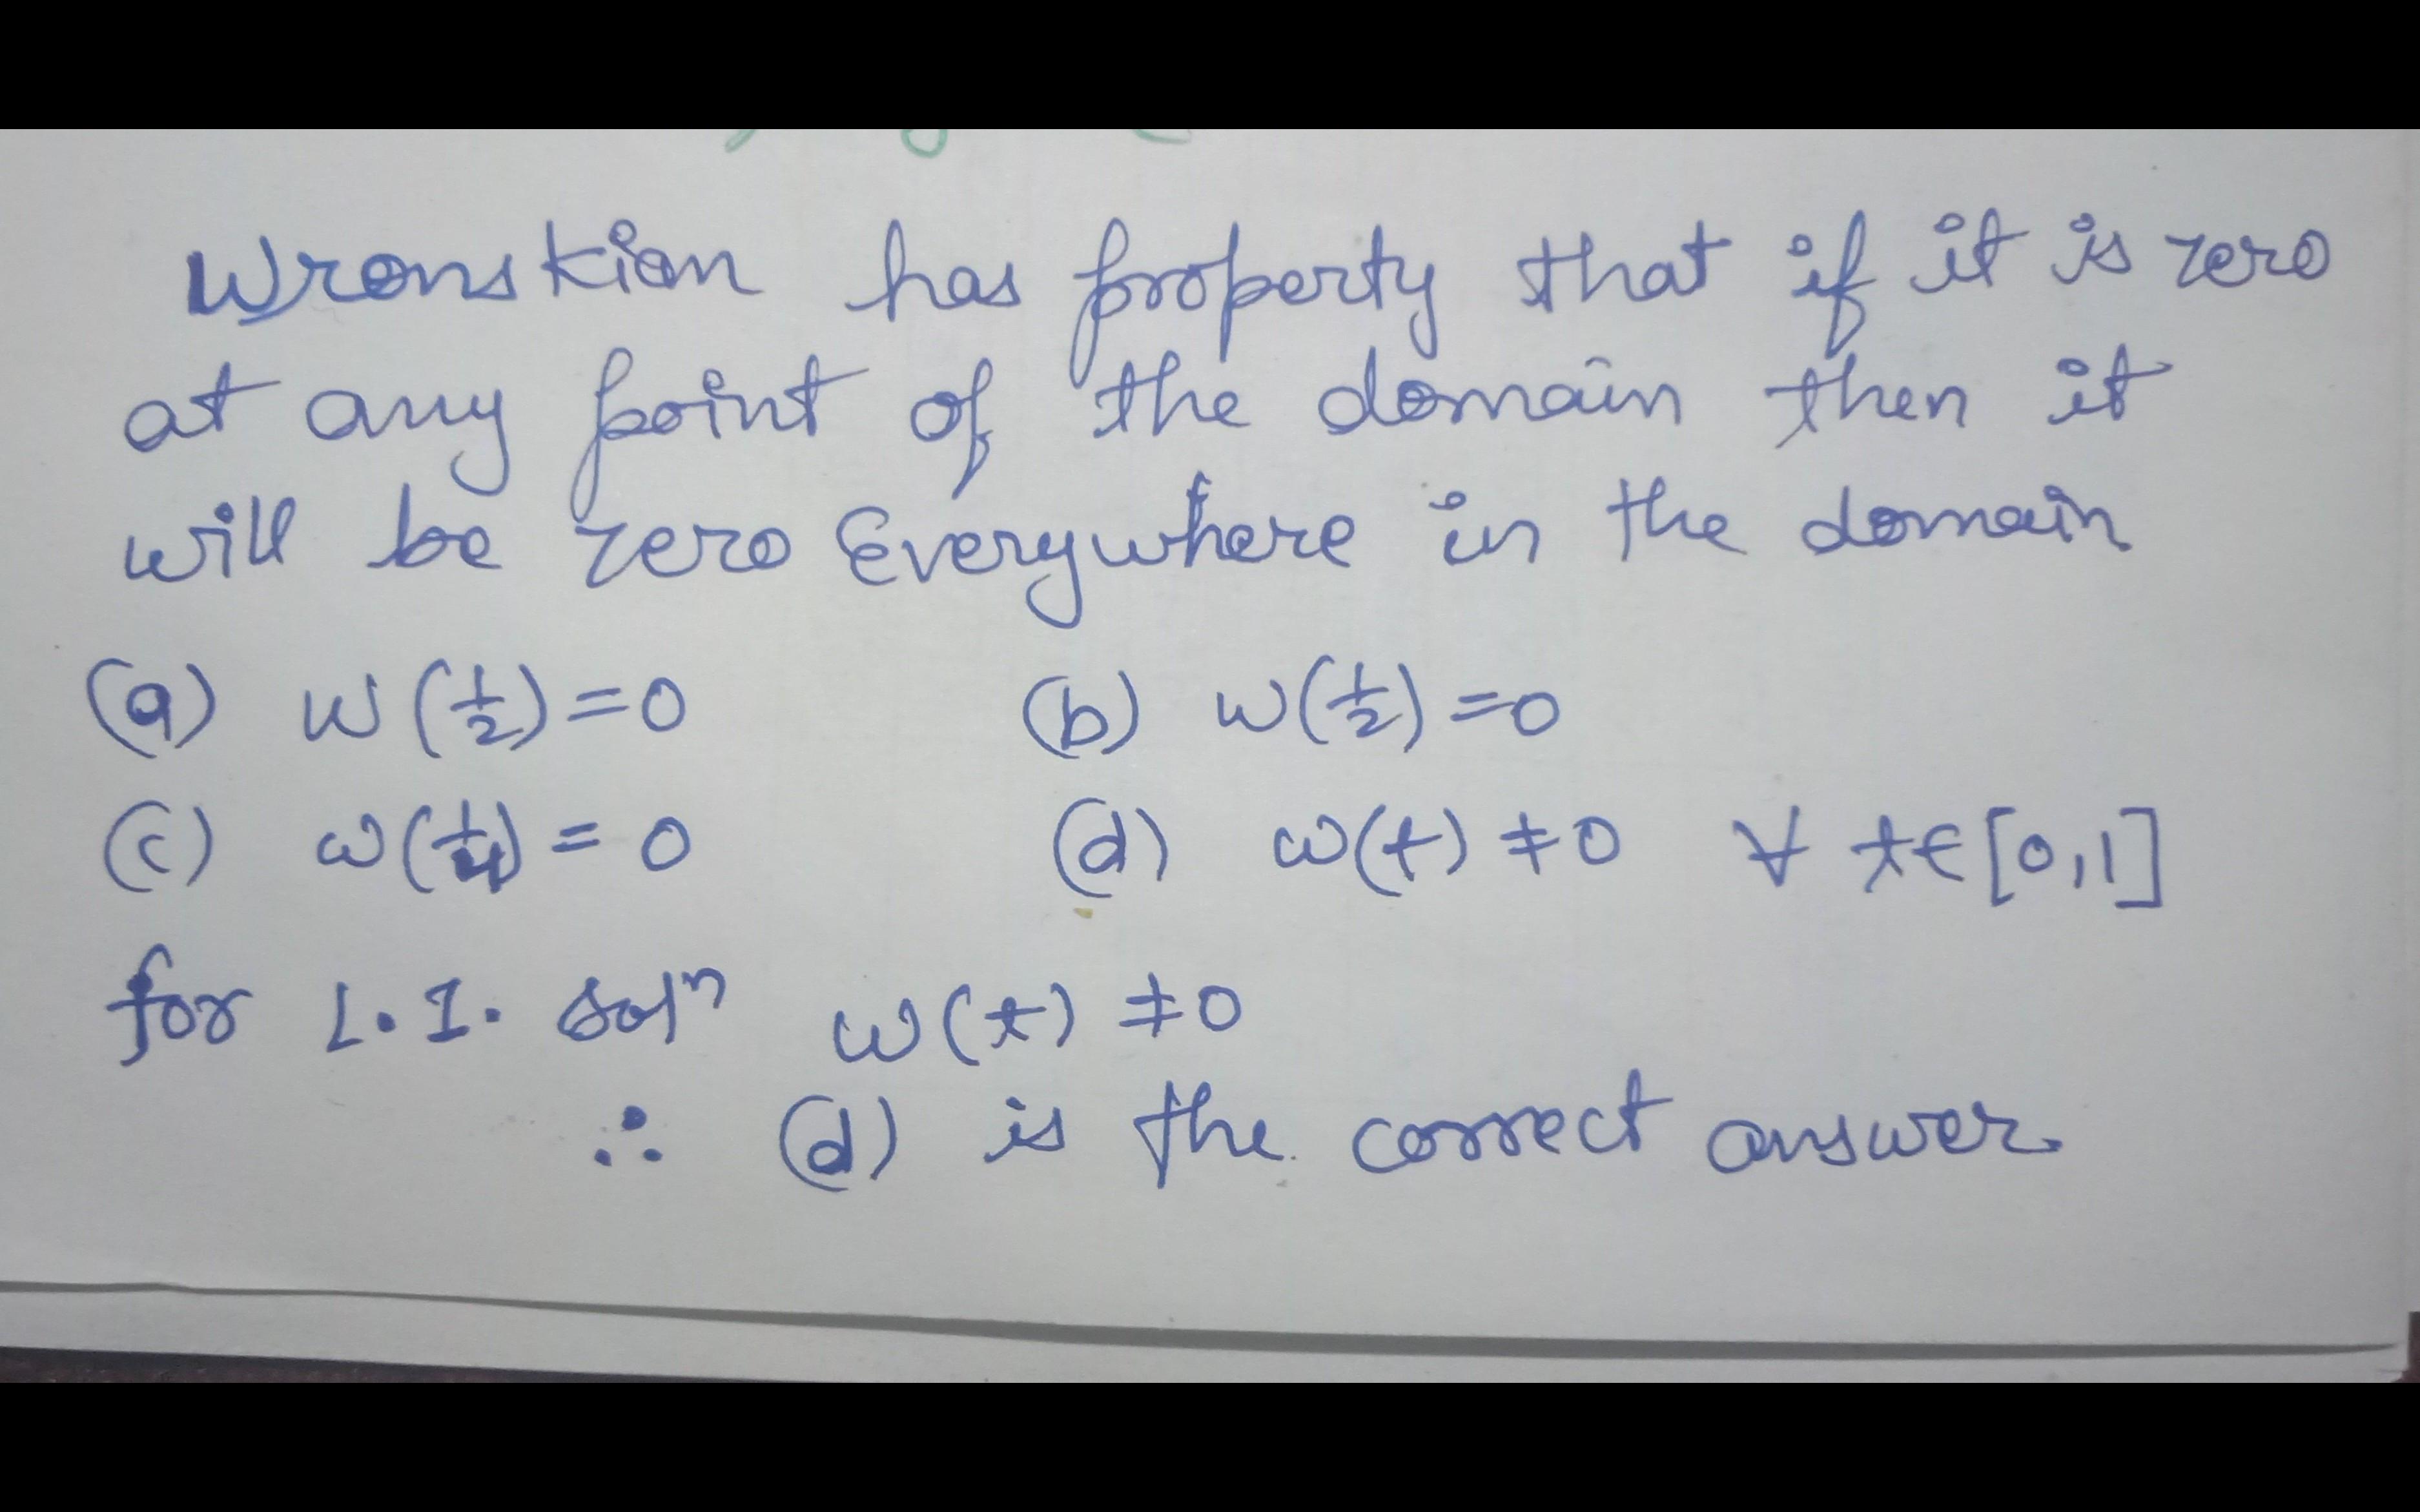 Wronskian has property that if it is zero
at any point of the domain then it
will be zero Everywhere in the domain
(a) W(1/2)=0 (b) W(1/2)=0
(c) W(1/4)=0 (d) W(t)≠0 ∀ t∈[0,1]
for L.I. solⁿ W(t)≠0
∴ (d) is the correct answer.